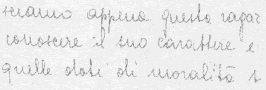 siamo appena questo ragaz
conoscere il suo carattere e
quelle doti di moralità s